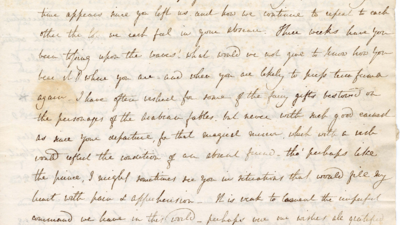 time appears since you left us and how we continue to repeat to each
other the we each feel in your absence. Three weeks have you
been tossing upon the waves! what would we not give to know how you
bear it & where you are - and when you are likely to press terra firma
again. I have often wished for some of the fairy gifts bestowed on
the personages of the arabian fables, but never with such good cause
as since your departure for that magical mirror which with a wish
would reflect the condition of an absent friend. tho' perhaps like
the prince, I might sometimes see you in situations that would fill my
heart with pain & apprehension. It is weak to lament the
command we have in this world - perhaps were our wishes all gratified